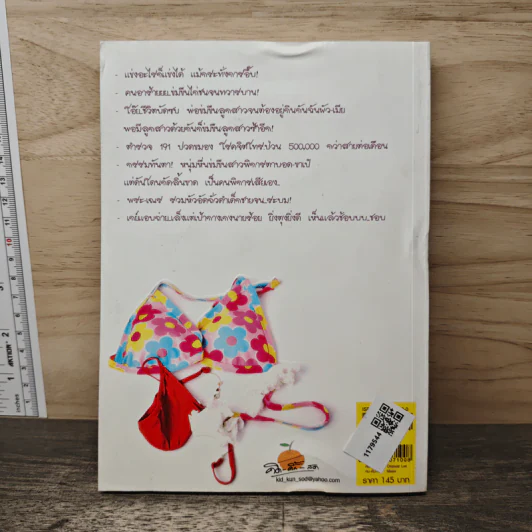 - แข่งอะไรก็แข่งได้ แม้กระทั่งการอึ๊บ!
- คนอาร้ายยย..ข่มขืนไก่ชนจนทวารบาน!
- โอ๊ย..ชีวิตบัดซบ พ่อข่มขืนลูกสาวจนท้องอยู่กินกันฉันผัว-เมีย
พอมีลูกสาวด้วยกันก็ข่มขืนลูกสาวซ้ำอีก!
- ตำรวจ 191 ปวดสมอง โรคจิตโทรป่วน 500,000 กว่าสายต่อเดือน
- กรรมทันตา! หนุ่มหื่นข่มขืนสาวพิการตาบอด-ขาเป๋
แต่ดันโดนกัดลิ้นขาด เป็นคนพิการเสียเอง..
- พระ-เณร รวมหัวอัดถั่วดำเด็กชายจน..ระบม!
- เกย์แอบจ่าย..เล็งแต่เป้ากางเกงนายร้อย ยิ่งตุงยิ่งดี เห็นแล้วช้อบบบ..ชอบ
kid_kun_sod@yahoo.com
1179544
ราคา 145 บาท
inches